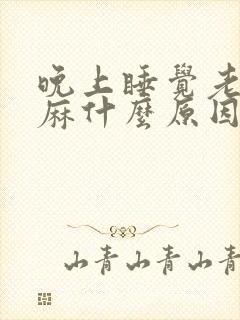 晚上睡覺老
麻什麼原因
山青山青山青